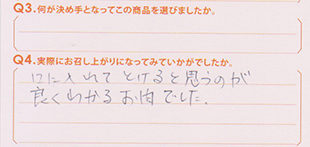 Q3.何が決め手となってこの商品を選びましたか。
Q4.実際にお召し上がりになってみていかがでしたか。
口に入れて とけると思うのが
良くわかる お肉でした.